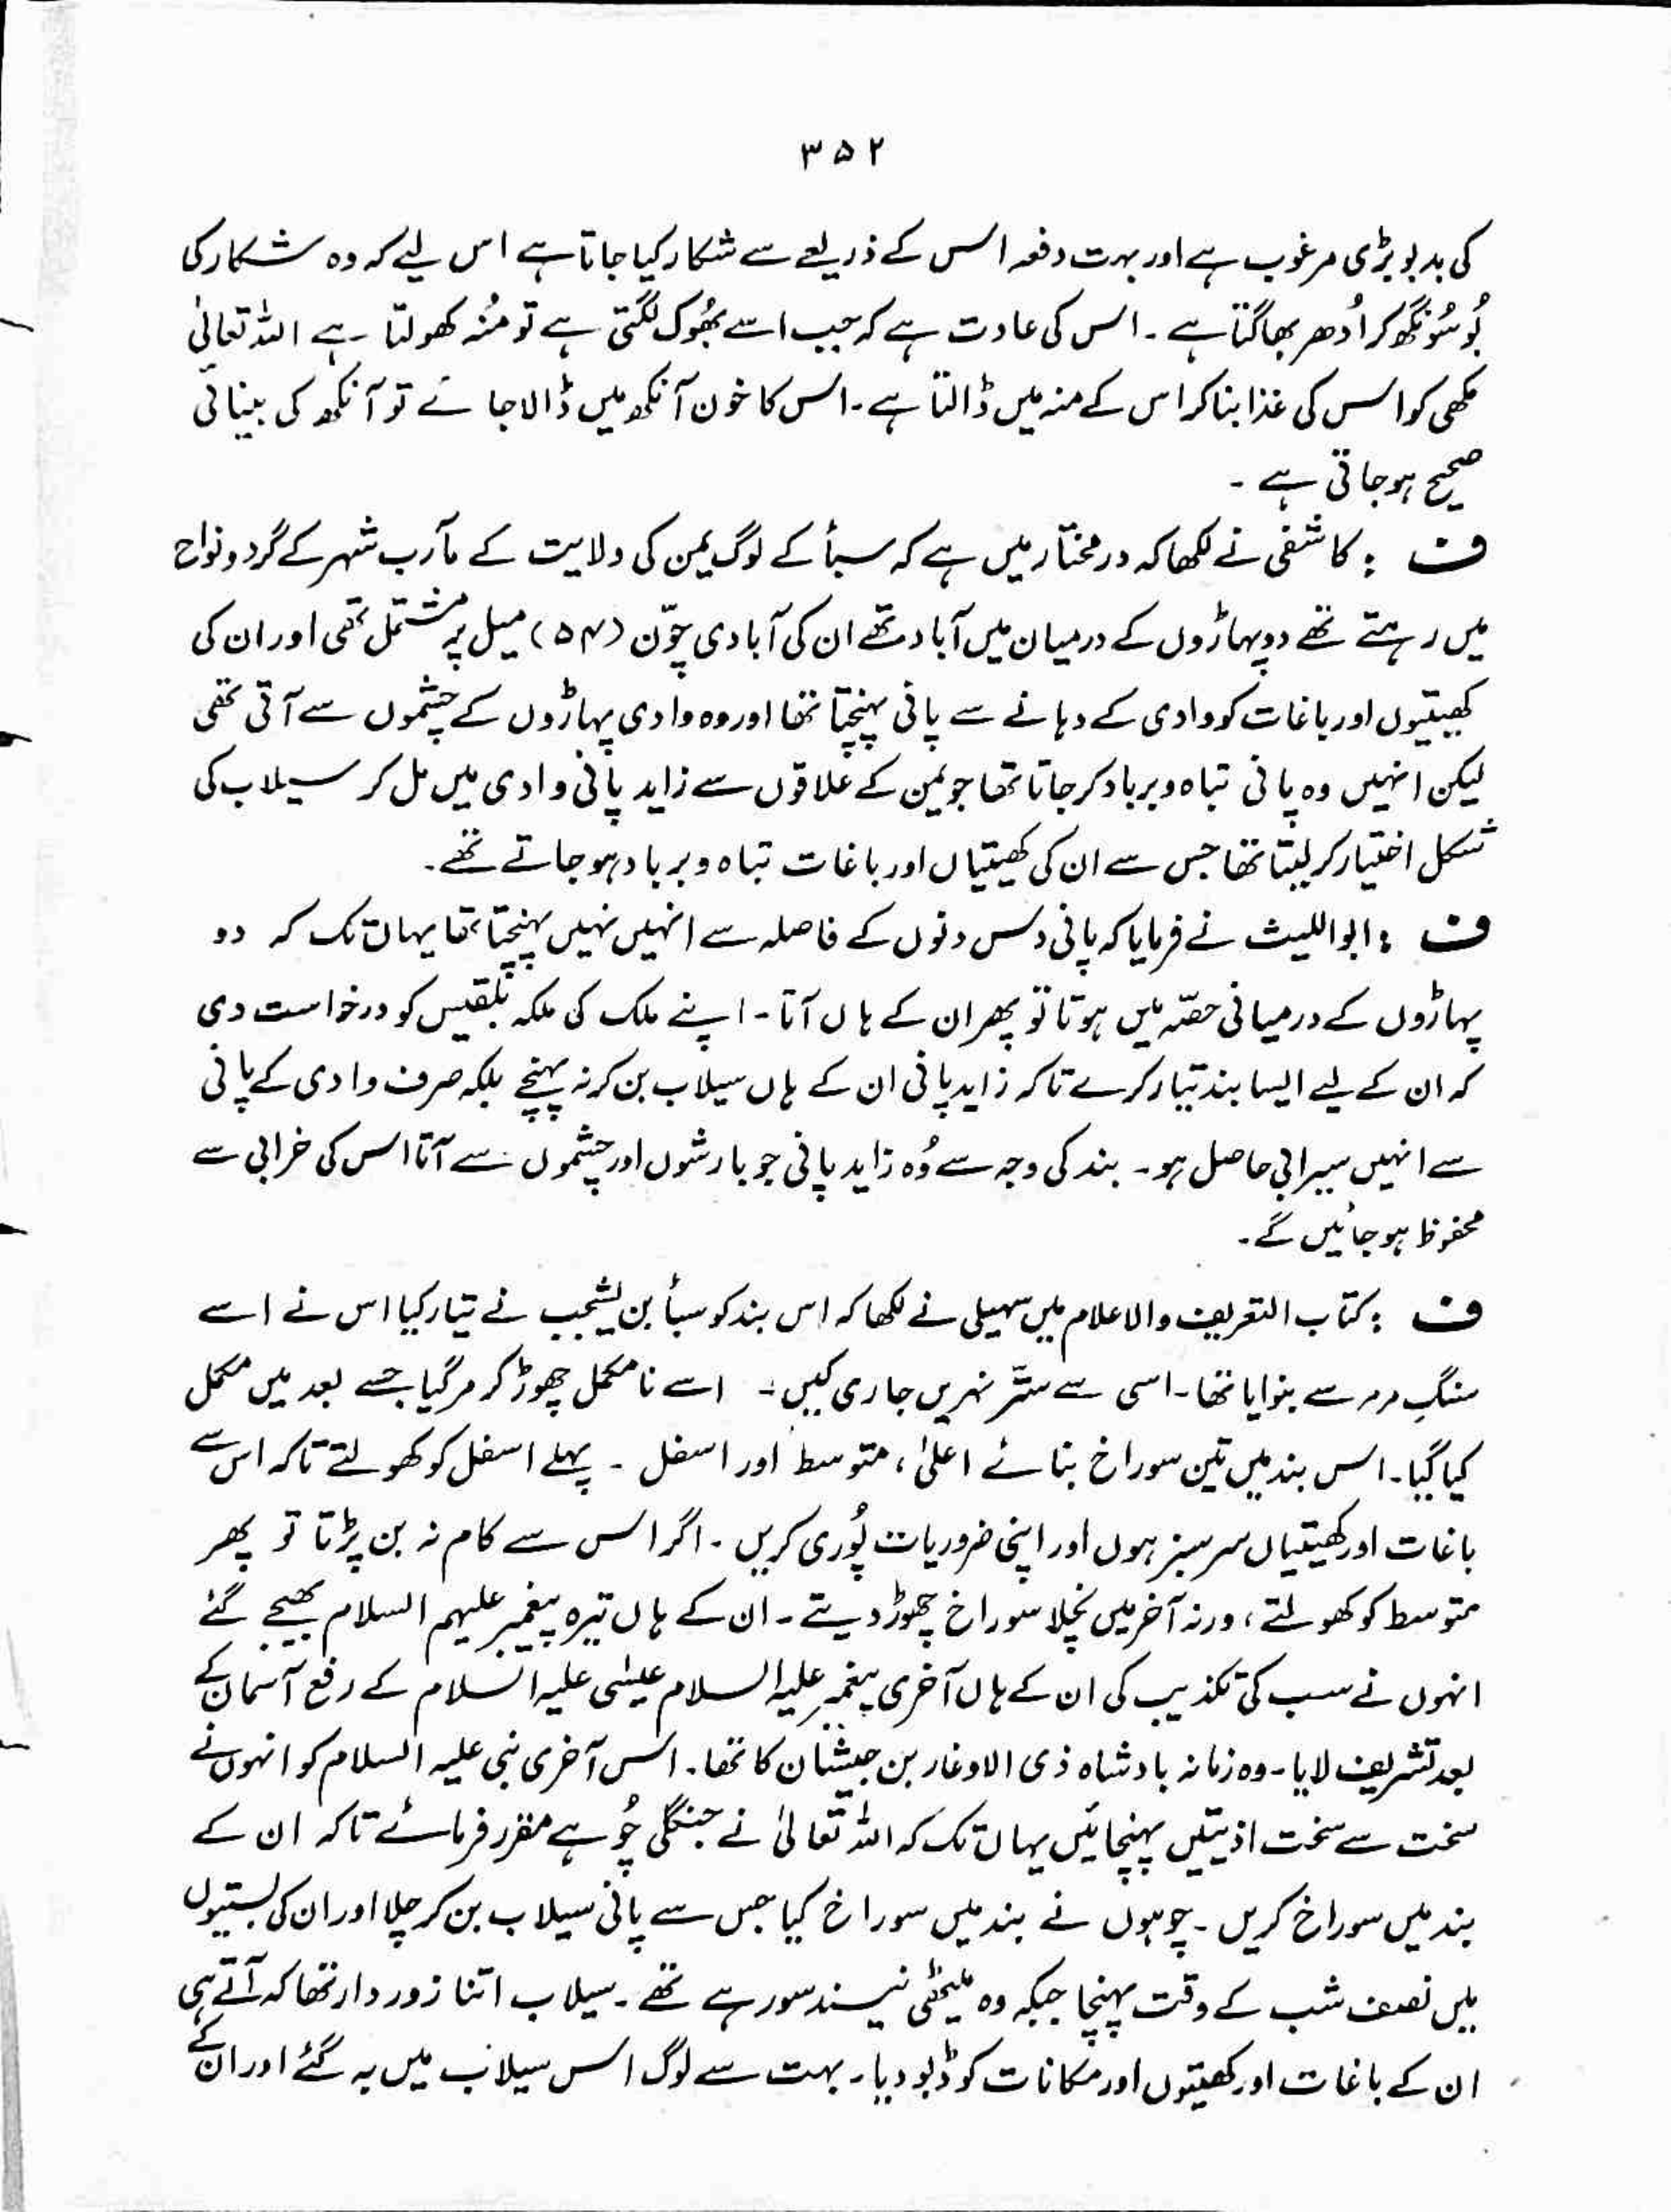 ۳۵۲
کی بدبو بڑی مرغوب ہے اور بہت دفعہ اس کے ذریعے سے شکار کیا جاتا ہے اس لیے کہ وہ شکار کی
بُو سُونگھ کر اُدھر بھاگتا ہے ۔ اس کی عادت ہے کہ جب اسے بھُوک لگتی ہے تو مُنہ کھولتا ہے اللہ تعالیٰ
مکھی کو اس کی غذا بنا کر اس کے منہ میں ڈالتا ہے ۔ اس کا خون آنکھ میں ڈالا جائے تو آنکھ کی بینائی
صحیح ہو جاتی ہے ۔
ف : کاشفی نے لکھا کہ درمختار میں ہے کہ سبأ کے لوگ یمن کی ولایت کے مآرب شہر کے گرد و نواح
میں رہتے تھے دو پہاڑوں کے درمیان میں آباد تھے ان کی آبادی چوّن (۵۴) میل پر مشتمل تھی اور ان کی
کھیتیوں اور باغات کو وادی کے دہانے سے پانی پہنچتا تھا اور وہ وادی پہاڑوں کے چشموں سے آتی تھی
لیکن انہیں وہ پانی تباہ و برباد کر جاتا تھا جو یمن کے علاقوں سے زاید پانی وادی میں مل کر سیلاب کی
شکل اختیار کر لیتا تھا جس سے ان کی کھیتیاں اور باغات تباہ و برباد ہو جاتے تھے ۔
ف : ابو اللیث نے فرمایا کہ پانی دس دنوں کے فاصلہ سے انہیں نہیں پہنچتا تھا یہاں تک کہ دو
پہاڑوں کے درمیانی حصّہ میں ہوتا تو پھر ان کے ہاں آتا ۔ اپنے ملک کی ملکہ بلقیس کو درخواست دی
کہ ان کے لیے ایسا بند تیار کرے تاکہ زاید پانی ان کے ہاں سیلاب بن کر نہ پہنچے بلکہ صرف وادی کے پانی
سے انہیں سیرابی حاصل ہو ۔ بند کی وجہ سے وُہ زاید پانی جو بارشوں اور چشموں سے آتا اس کی خرابی سے
محفوظ ہو جائیں گے ۔
ف : کتاب التعریف والاعلام میں سہیلی نے لکھا کہ اس بند کو سبأ بن یشجب نے تیار کیا اس نے اسے
سنگِ مرمر سے بنوایا تھا ۔ اسی سے ستّر نہریں جاری کیں ۔ اسے نامکمل چھوڑ کر مر گیا جسے بعد میں مکمل
کیا گیا ۔ اس بند میں تین سوراخ بنائے اعلیٰ ، متوسط اور اسفل ۔ پہلے اسفل کو کھولتے تاکہ اس سے
باغات اور کھیتیاں سرسبز ہوں اور اپنی ضروریات پُوری کریں ۔ اگر اس سے کام نہ بن پڑتا تو پھر
متوسط کو کھولتے ، ورنہ آخر میں نچلا سوراخ چھوڑ دیتے ۔ ان کے ہاں تیرہ پیغمبر علیہم السلام بھیجے گئے
انہوں نے سب کی تکذیب کی ان کے ہاں آخری پیغمبر علیہ السلام عیسٰی علیہ السلام کے رفع آسمان کے
بعد تشریف لایا ۔ وہ زمانہ بادشاہ ذی الاوغار بن جیشان کا تھا ۔ اس آخری نبی علیہ السلام کو انہوں نے
سخت سے سخت اذیتیں پہنچائیں یہاں تک کہ اللہ تعالیٰ نے جنگلی چُوہے مقرر فرمائے تاکہ ان کے
بند میں سوراخ کریں ۔ چوہوں نے بند میں سوراخ کیا جس سے پانی سیلاب بن کر چلا اور ان کی بستیوں
میں نصف شب کے وقت پہنچا جبکہ وہ میٹھی نیند سو رہے تھے ۔ سیلاب اتنا زور دار تھا کہ آتے ہی
ان کے باغات اور کھیتوں اور مکانات کو ڈبو دیا ۔ بہت سے لوگ اس سیلاب میں بہ گئے اور ان کے